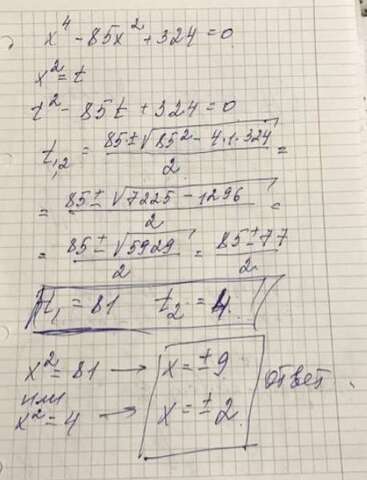 x⁴ - 85x² + 324 = 0
x² = t
t² - 85t + 324 = 0
t₁,₂ = (85 ± √(85² - 4·1·324))/2 =
= (85 ± √(7225 - 1296))/2 =
= (85 ± √5929)/2 = (85 ± 77)/2
t₁ = 81 t₂ = 4
x² = 81 → x = ± 9
или
x² = 4 → x = ± 2
ответ